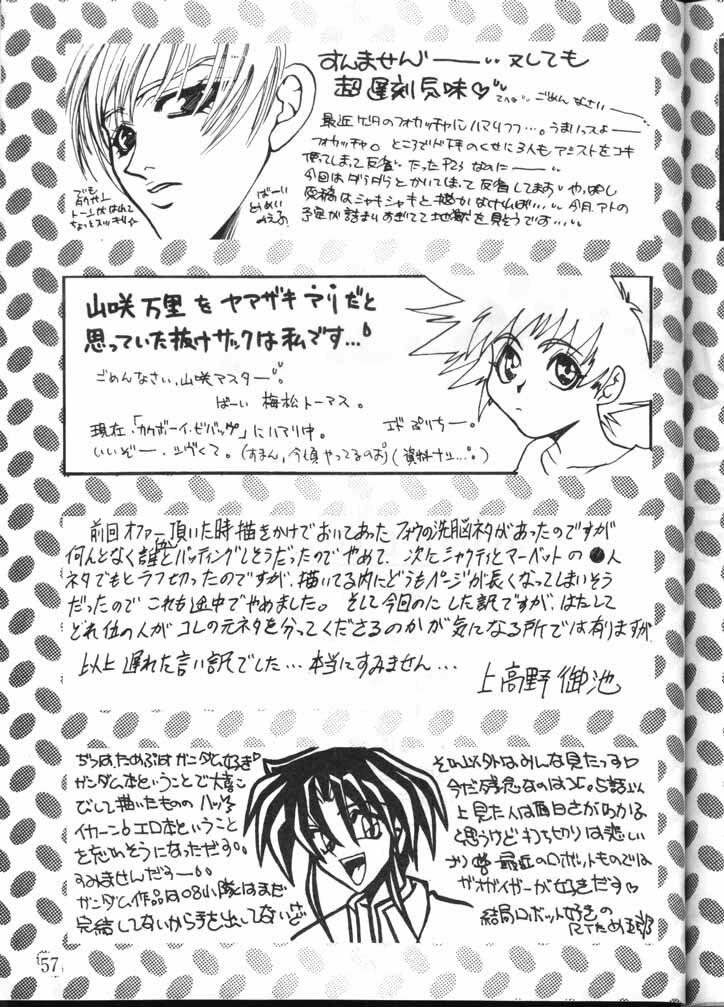 すんませんーー又しても
超遅刻気味♡
ごめんなさいーー
最近
のフォカッチャにハマりつつ…。うまいっスよーー
フォカッチャ。ところで
のくせに3人もアシストをコキ
使ってしまって反省
だったP23なのにーー
今回はダラダラとかいてしまって反省してます
やっぱし
原稿はシャキシャキと描かなければ…
今月アトの
予定が詰まりすぎてて地獄を見そうです…
でも
トーンがはれて
ちょっとスッキリ
ばーい
山咲万里をヤマザキマリだと
思っていた抜けサックは私です…
ごめんなさい、山咲マスター。
ばーい 梅松トーマス。
現在、「カウボーイ・ビバップ」にハマり中。
エドぷりちー。
いいぞー、シヴくて。(すまん、今頃やってるのお)(資料ナシ…。)
前回オファー頂いた時描きかけでおいてあったフォウの洗脳ネタがあったのですが
何んとなく誰かとバッティングしそうだったのでやめて、次にシャクティとマーベットの●人
ネタでもとラフ切ったのですが、描いてる内にどうもページが長くなってしまいそう
だったのでこれも途中でやめました。そして今回のにした訳ですが、はたして
どれ位の人がコレの元ネタを分ってくださるのかが気になる所では有りますが
以上遅れた言い訳でした…本当にすみません…
上高野御池
じつはためぷはガンダム好き
ガンダム本ということで大喜
びして描いたものの ハッ
イカーン エロ本ということ
を忘れそうになっただす
すみませんだすーー
ガンダム作品は08小隊はまだ
完結してないから手を出してないけど
それ以外はみんな見たっす
今だ残念なのはX。5話以
上見た人は面白さがわかる
と思うけど打ち切りは悲しい
最近のロボットものでは
ガオガイガーが好きだす♡
結局ロボット好きの
57